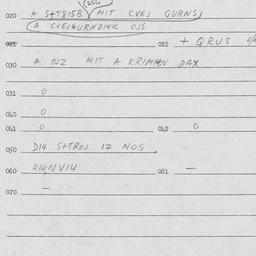 020 A S+T815B MIT CVEJ GURNS
(A CVEJGURNDI4K OJS
021 022 + QRUS
030 A OJZ MIT A KRIM DAX
031 0
040 0
041 0 042 0
050 DI4 S+TROJ 12 NOS
060 RI4NVI4 061 —
070 —